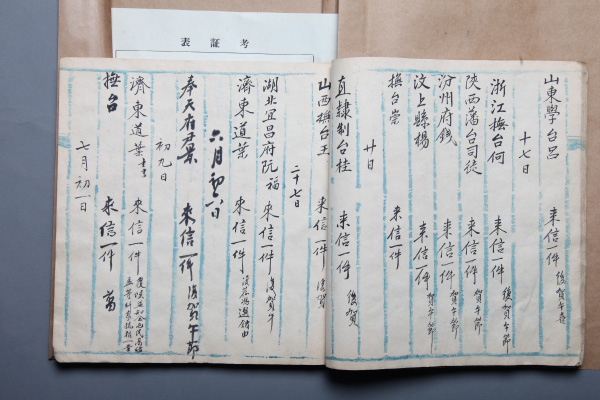 考証表
山東學台呂 來信一件 復賀午喜
十七日
浙江撫台何 來信一件 復賀午節
陝西藩台司徒 來信一件 賀午節
汾州府錢 來信一件 賀午節
汶上縣楊 來信一件 賀午節
撫台崇 來信一件
廿日
直隸制台桂 來信一件 復賀
山西撫台王 來信一件 復賀
二十七日
湖北宜昌府阮福 來信一件 復賀午
濟東道葉 來信一件
六月初六日
奉天府尹景 來信一件 復賀午節
初九日
濟東道葉 來信一件
撫台 來信一件
七月初一日